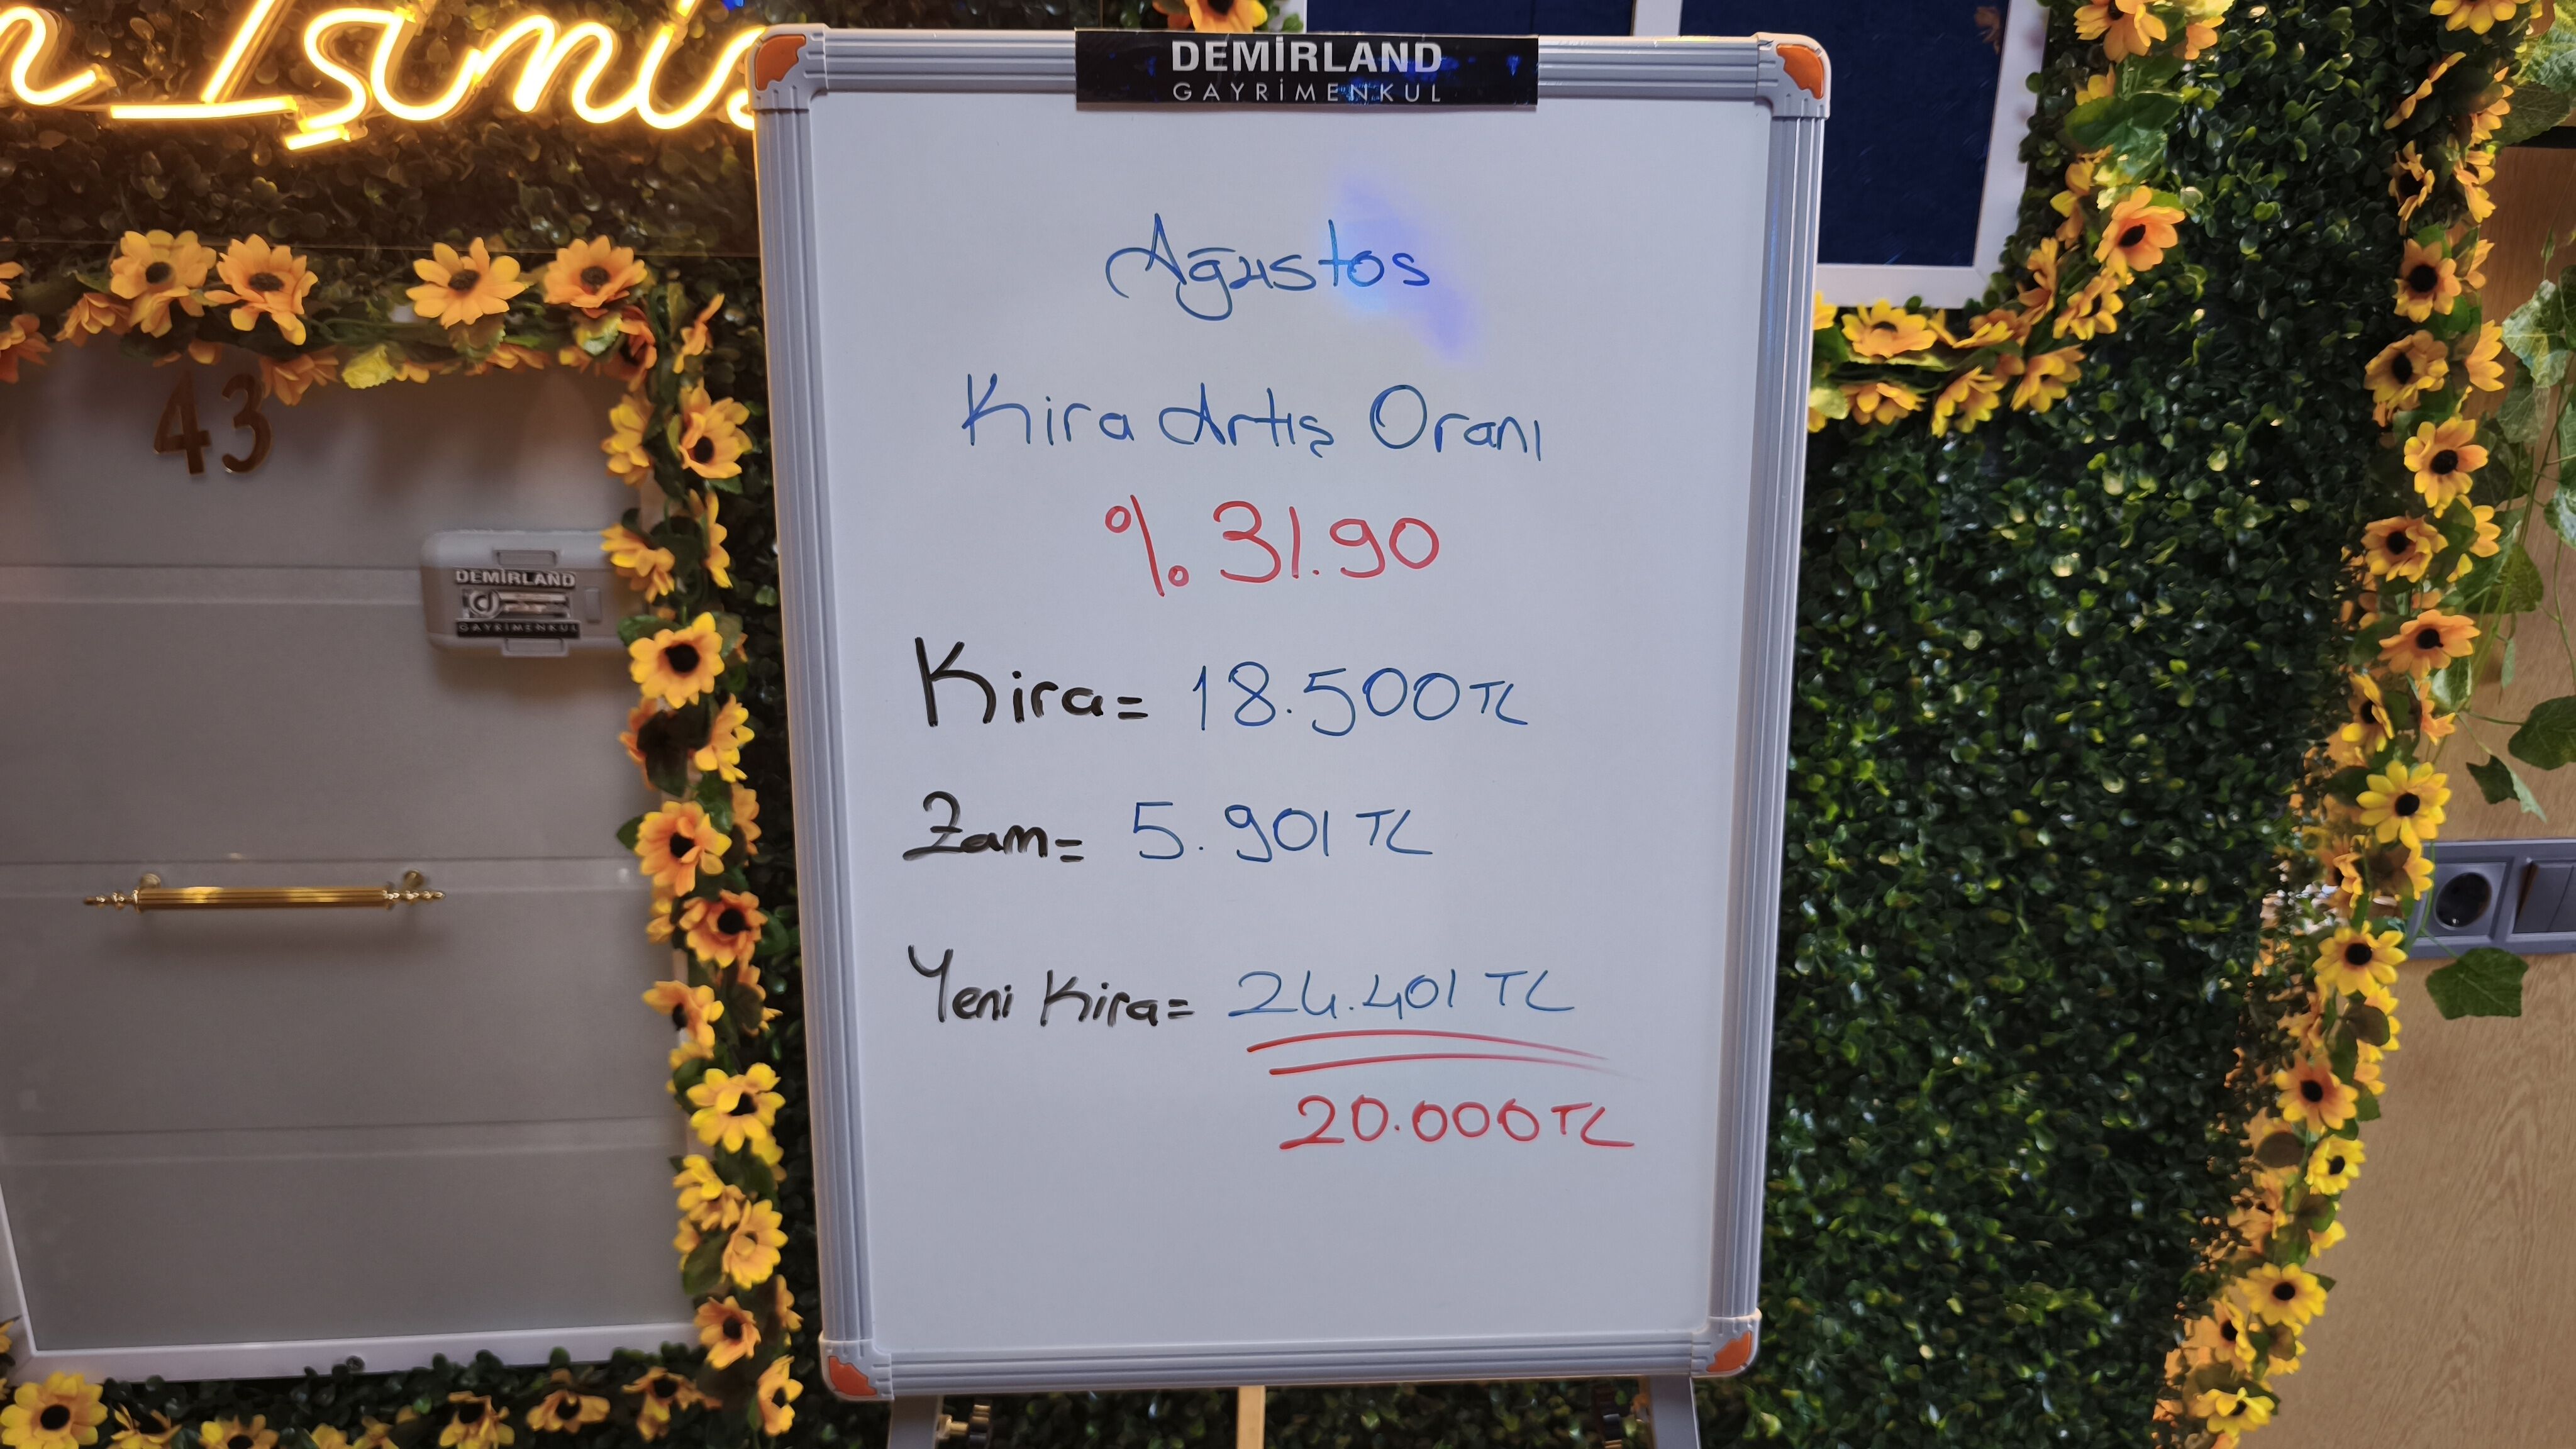 n İşimiz
DEMİRLAND
GAYRİMENKUL
Ağustos
Kira Artış Oranı
%31.90
Kira= 18.500 TL
Zam= 5.901 TL
Yeni Kira= 24.401 TL
20.000 TL
43
DEMİRLAND
GAYRİMENKUL